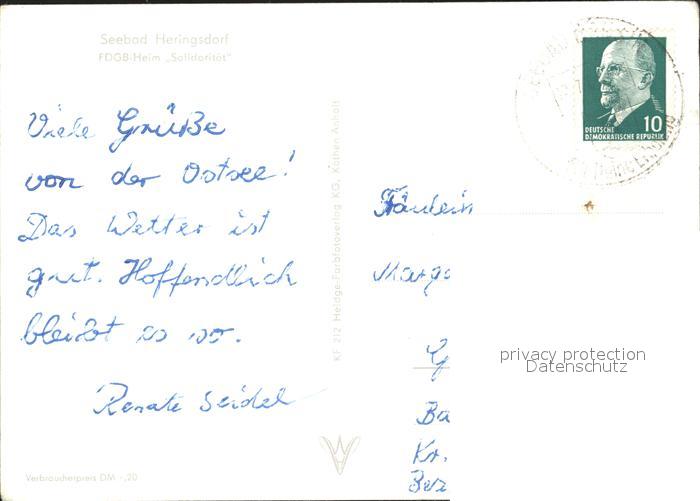 Seebad Heringsdorf
FDGB-Heim „Solidarität"
Viele Grüße
von der Ostsee!
Das Wetter ist
gut. Hoffendlich
bleibt es so.
Renate Seidel
Verbraucherpreis DM -,20
KF 212 Heldge-Farbfotoverlag KG, Köthen-Anhalt
DEUTSCHE
DEMOKRATISCHE REPUBLIK
10
Fräulein
Margo
Ba
Kr.
Bez
privacy protection
Datenschutz